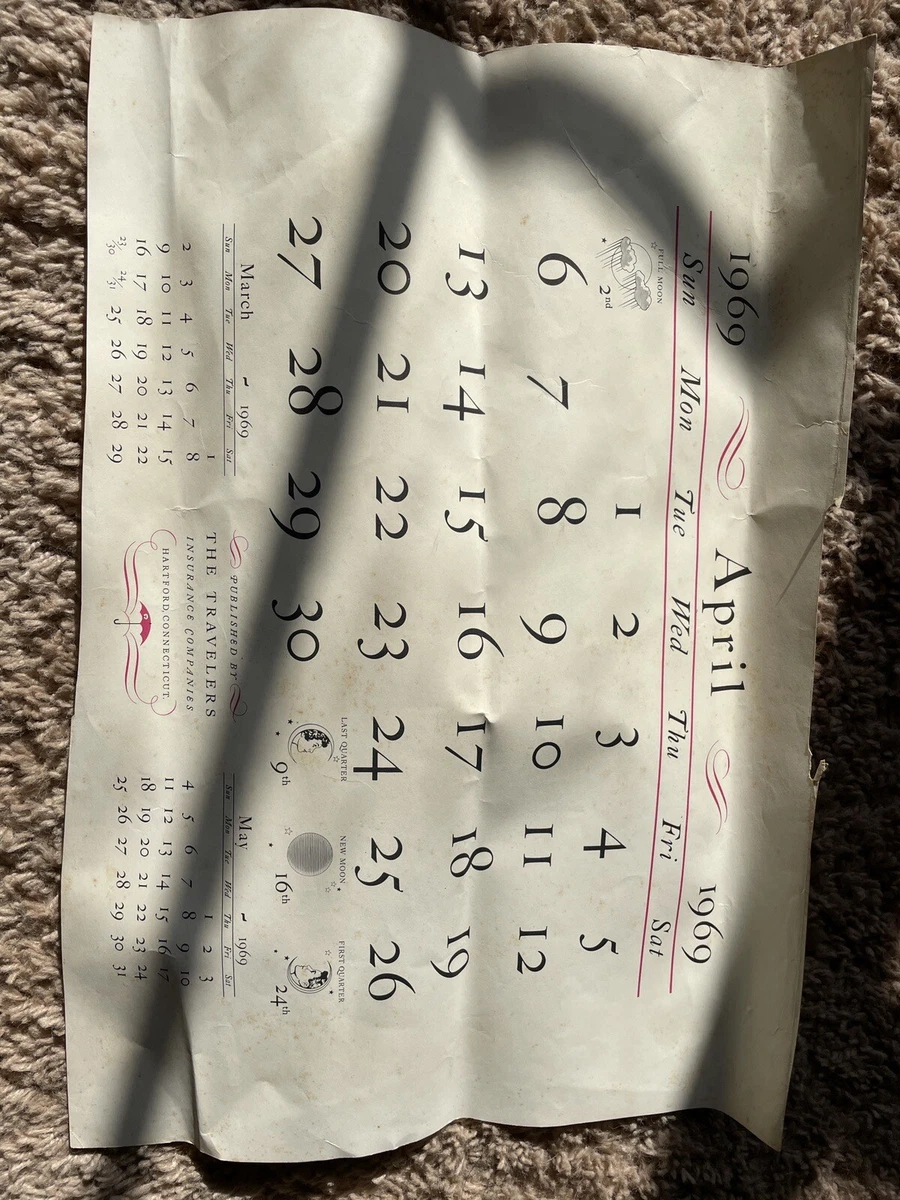 1969 April 1969
Sun Mon Tue Wed Thu Fri Sat
FULL MOON
2nd
1 2 3 4 5
6 7 8 9 10 11 12
13 14 15 16 17 18 19
20 21 22 23 24 25 26
27 28 29 30
LAST QUARTER
9th
NEW MOON
16th
FIRST QUARTER
24th
March ~ 1969
Sun Mon Tue Wed Thu Fri Sat
1
2 3 4 5 6 7 8
9 10 11 12 13 14 15
16 17 18 19 20 21 22
23/30 24/31 25 26 27 28 29
PUBLISHED BY
THE TRAVELERS
INSURANCE COMPANIES
HARTFORD, CONNECTICUT.
May ~ 1969
Sun Mon Tue Wed Thu Fri Sat
1 2 3
4 5 6 7 8 9 10
11 12 13 14 15 16 17
18 19 20 21 22 23 24
25 26 27 28 29 30 31